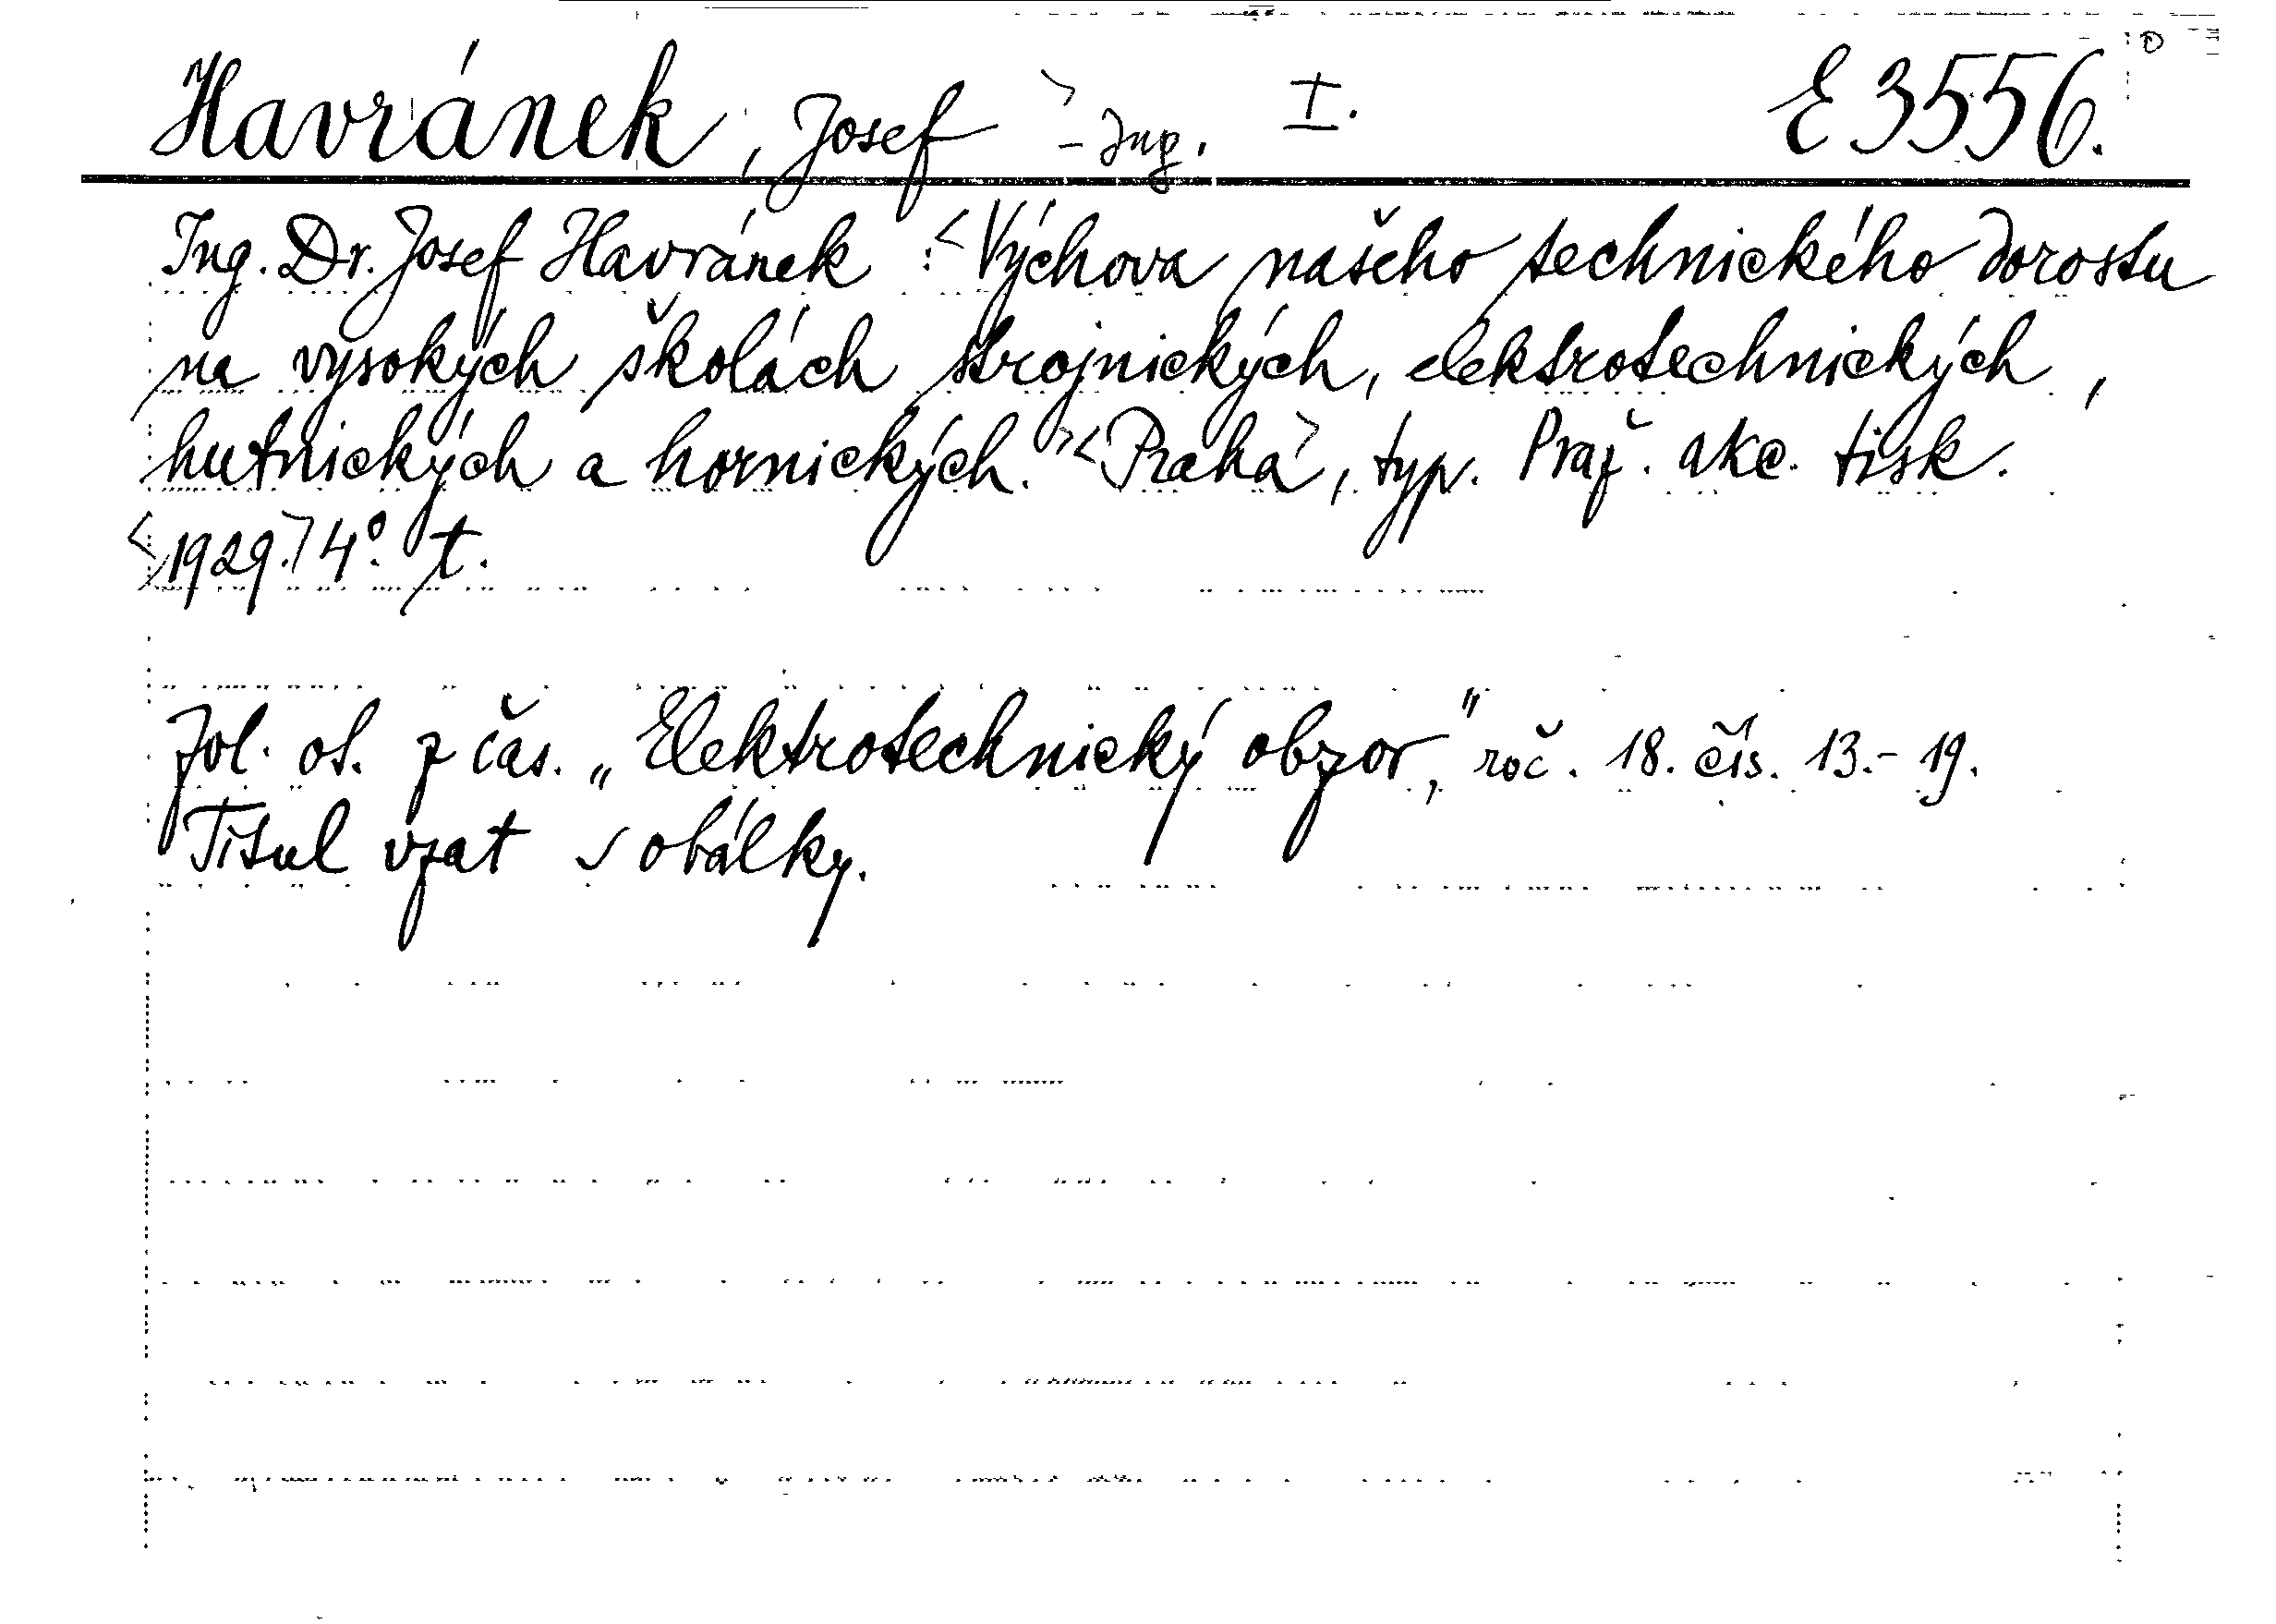 Havránek, Josef > - Ing. I. E 3556.
Ing. Dr. Josef Havránek : <Výchova našeho technického dorostu
na vysokých školách strojnických, elektrotechnických,
hutnických a hornických.> <Praha>, typ. Praž. akc. tisk.
<1929.> 4°. t.
Zvl. ot. z čas. „Elektrotechnický obzor," roč. 18. čís. 13.- 19.
Titul vzat s obálky.